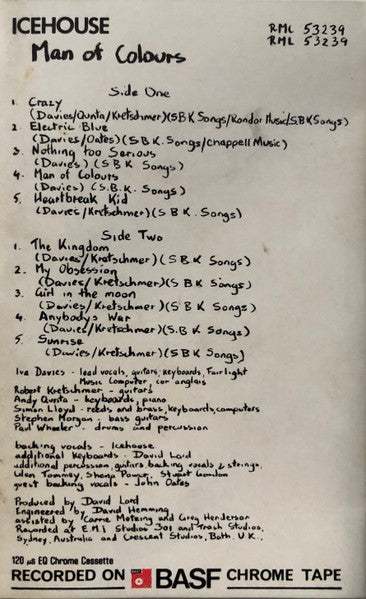 ICEHOUSE
RMC 53239
RML 53239
Man of Colours
Side One
1. Crazy
(Davies/Qunta/Kretschmer)(SBK Songs/Rondor Music/S.B.K Songs)
2. Electric Blue
(Davies/Oates)(S B K. Songs/Chappell Music)
3. Nothing too Serious
(Davies) (S B K Songs)
4. Man of Colours
(Davies) (S.B.K. Songs)
5. Heartbreak Kid
(Davies/Kretschmer)(S B K. Songs)
Side Two
1. The Kingdom
(Davies/Kretschmer)(S B K Songs)
2. My Obsession
(Davies/Kretschmer)(S B K Songs)
3. Girl in the moon
(Davies/Kretschmer)(S B K Songs)
4. Anybodys War
(Davies/Kretschmer)(S.B K Songs)
5. Sunrise
(Davies/Kretschmer)(S B K Songs)
Iva Davies - lead vocals, guitars, keyboards, Fairlight
Music Computer, cor anglais
Robert Kretschmer - guitars
Andy Qunta - keyboards, piano
Simon Lloyd - reeds and brass, keyboards, computers
Stephen Morgan - bass guitars
Paul Wheeler - drums and percussion
backing vocals - Icehouse
additional keyboards - David Lord
additional percussion, guitars, backing vocals & strings,
Tommey, Shena Power, Stuart Gordon
guest backing vocals - John Oates
Produced by David Lord
Engineered by David Hemming
assisted by Carrie Motzing and Greg Henderson
Recorded at E.M.I Studios 301 and Trash Studios,
Sydney, Australia and Crescent Studios, Bath. U.K..
120 µs EQ Chrome Cassette
RECORDED ON BASF CHROME TAPE